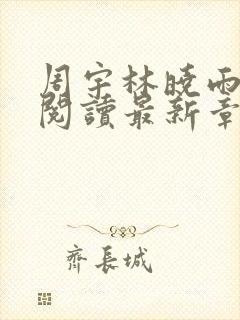 周宇林曉雨
閱讀最新章
齊長城